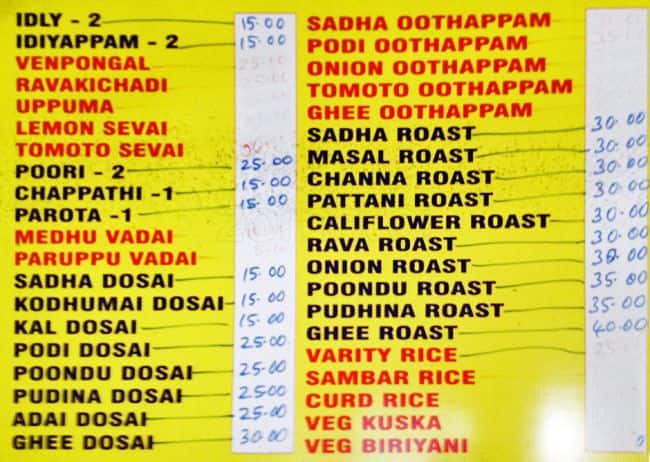 IDLY - 2 15.00
IDIYAPPAM - 2 15.00
VENPONGAL
RAVAKICHADI
UPPUMA
LEMON SEVAI
TOMOTO SEVAI
POORI - 2 25.00
CHAPPATHI -1 15.00
PAROTA -1 15.00
MEDHU VADAI
PARUPPU VADAI
SADHA DOSAI 15.00
KODHUMAI DOSAI 15.00
KAL DOSAI 15.00
PODI DOSAI 25.00
POONDU DOSAI 25.00
PUDINA DOSAI 25.00
ADAI DOSAI 25.00
GHEE DOSAI 30.00
SADHA OOTHAPPAM
PODI OOTHAPPAM
ONION OOTHAPPAM
TOMOTO OOTHAPPAM
GHEE OOTHAPPAM
SADHA ROAST 30.00
MASAL ROAST 30.00
CHANNA ROAST 30.00
PATTANI ROAST 30.00
CALIFLOWER ROAST 30.00
RAVA ROAST 30.00
ONION ROAST 30.00
POONDU ROAST 35.00
PUDHINA ROAST 35.00
GHEE ROAST 40.00
VARITY RICE
SAMBAR RICE
CURD RICE
VEG KUSKA
VEG BIRIYANI